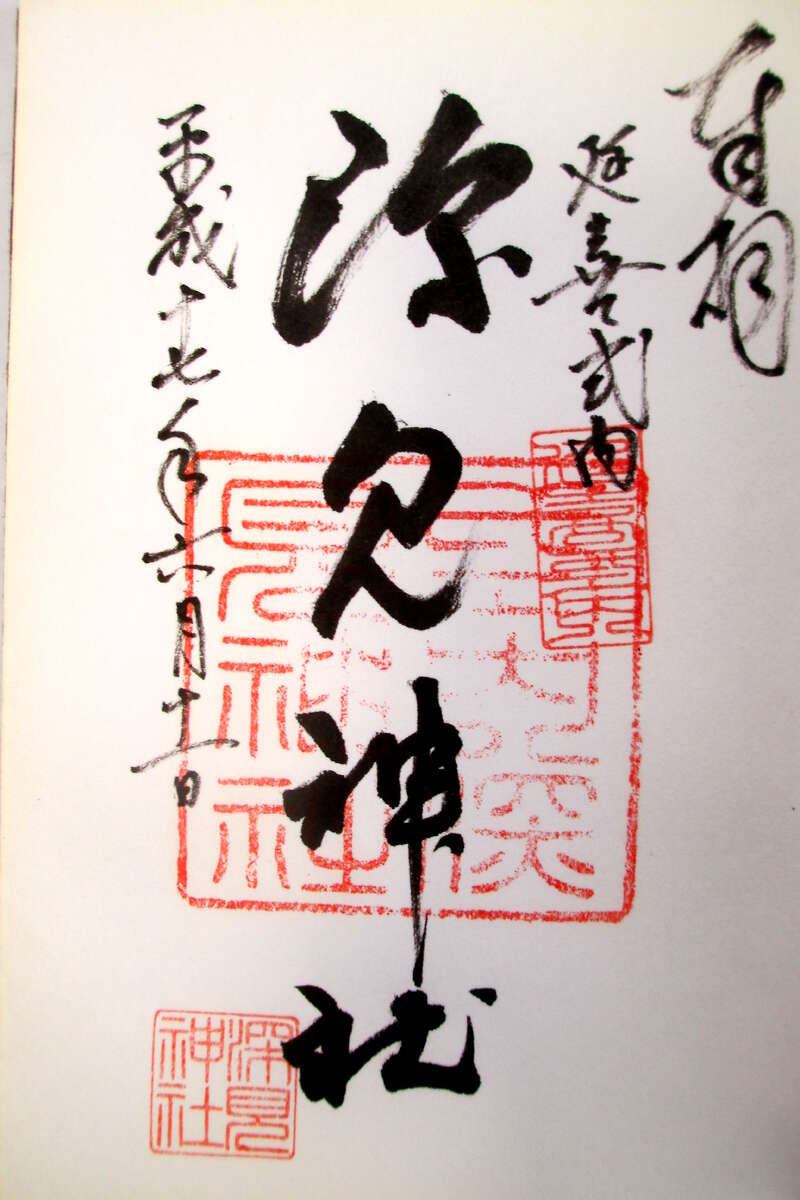 奉拝
延喜式内
深見神社
平成十七年六月十一日
深見
神社